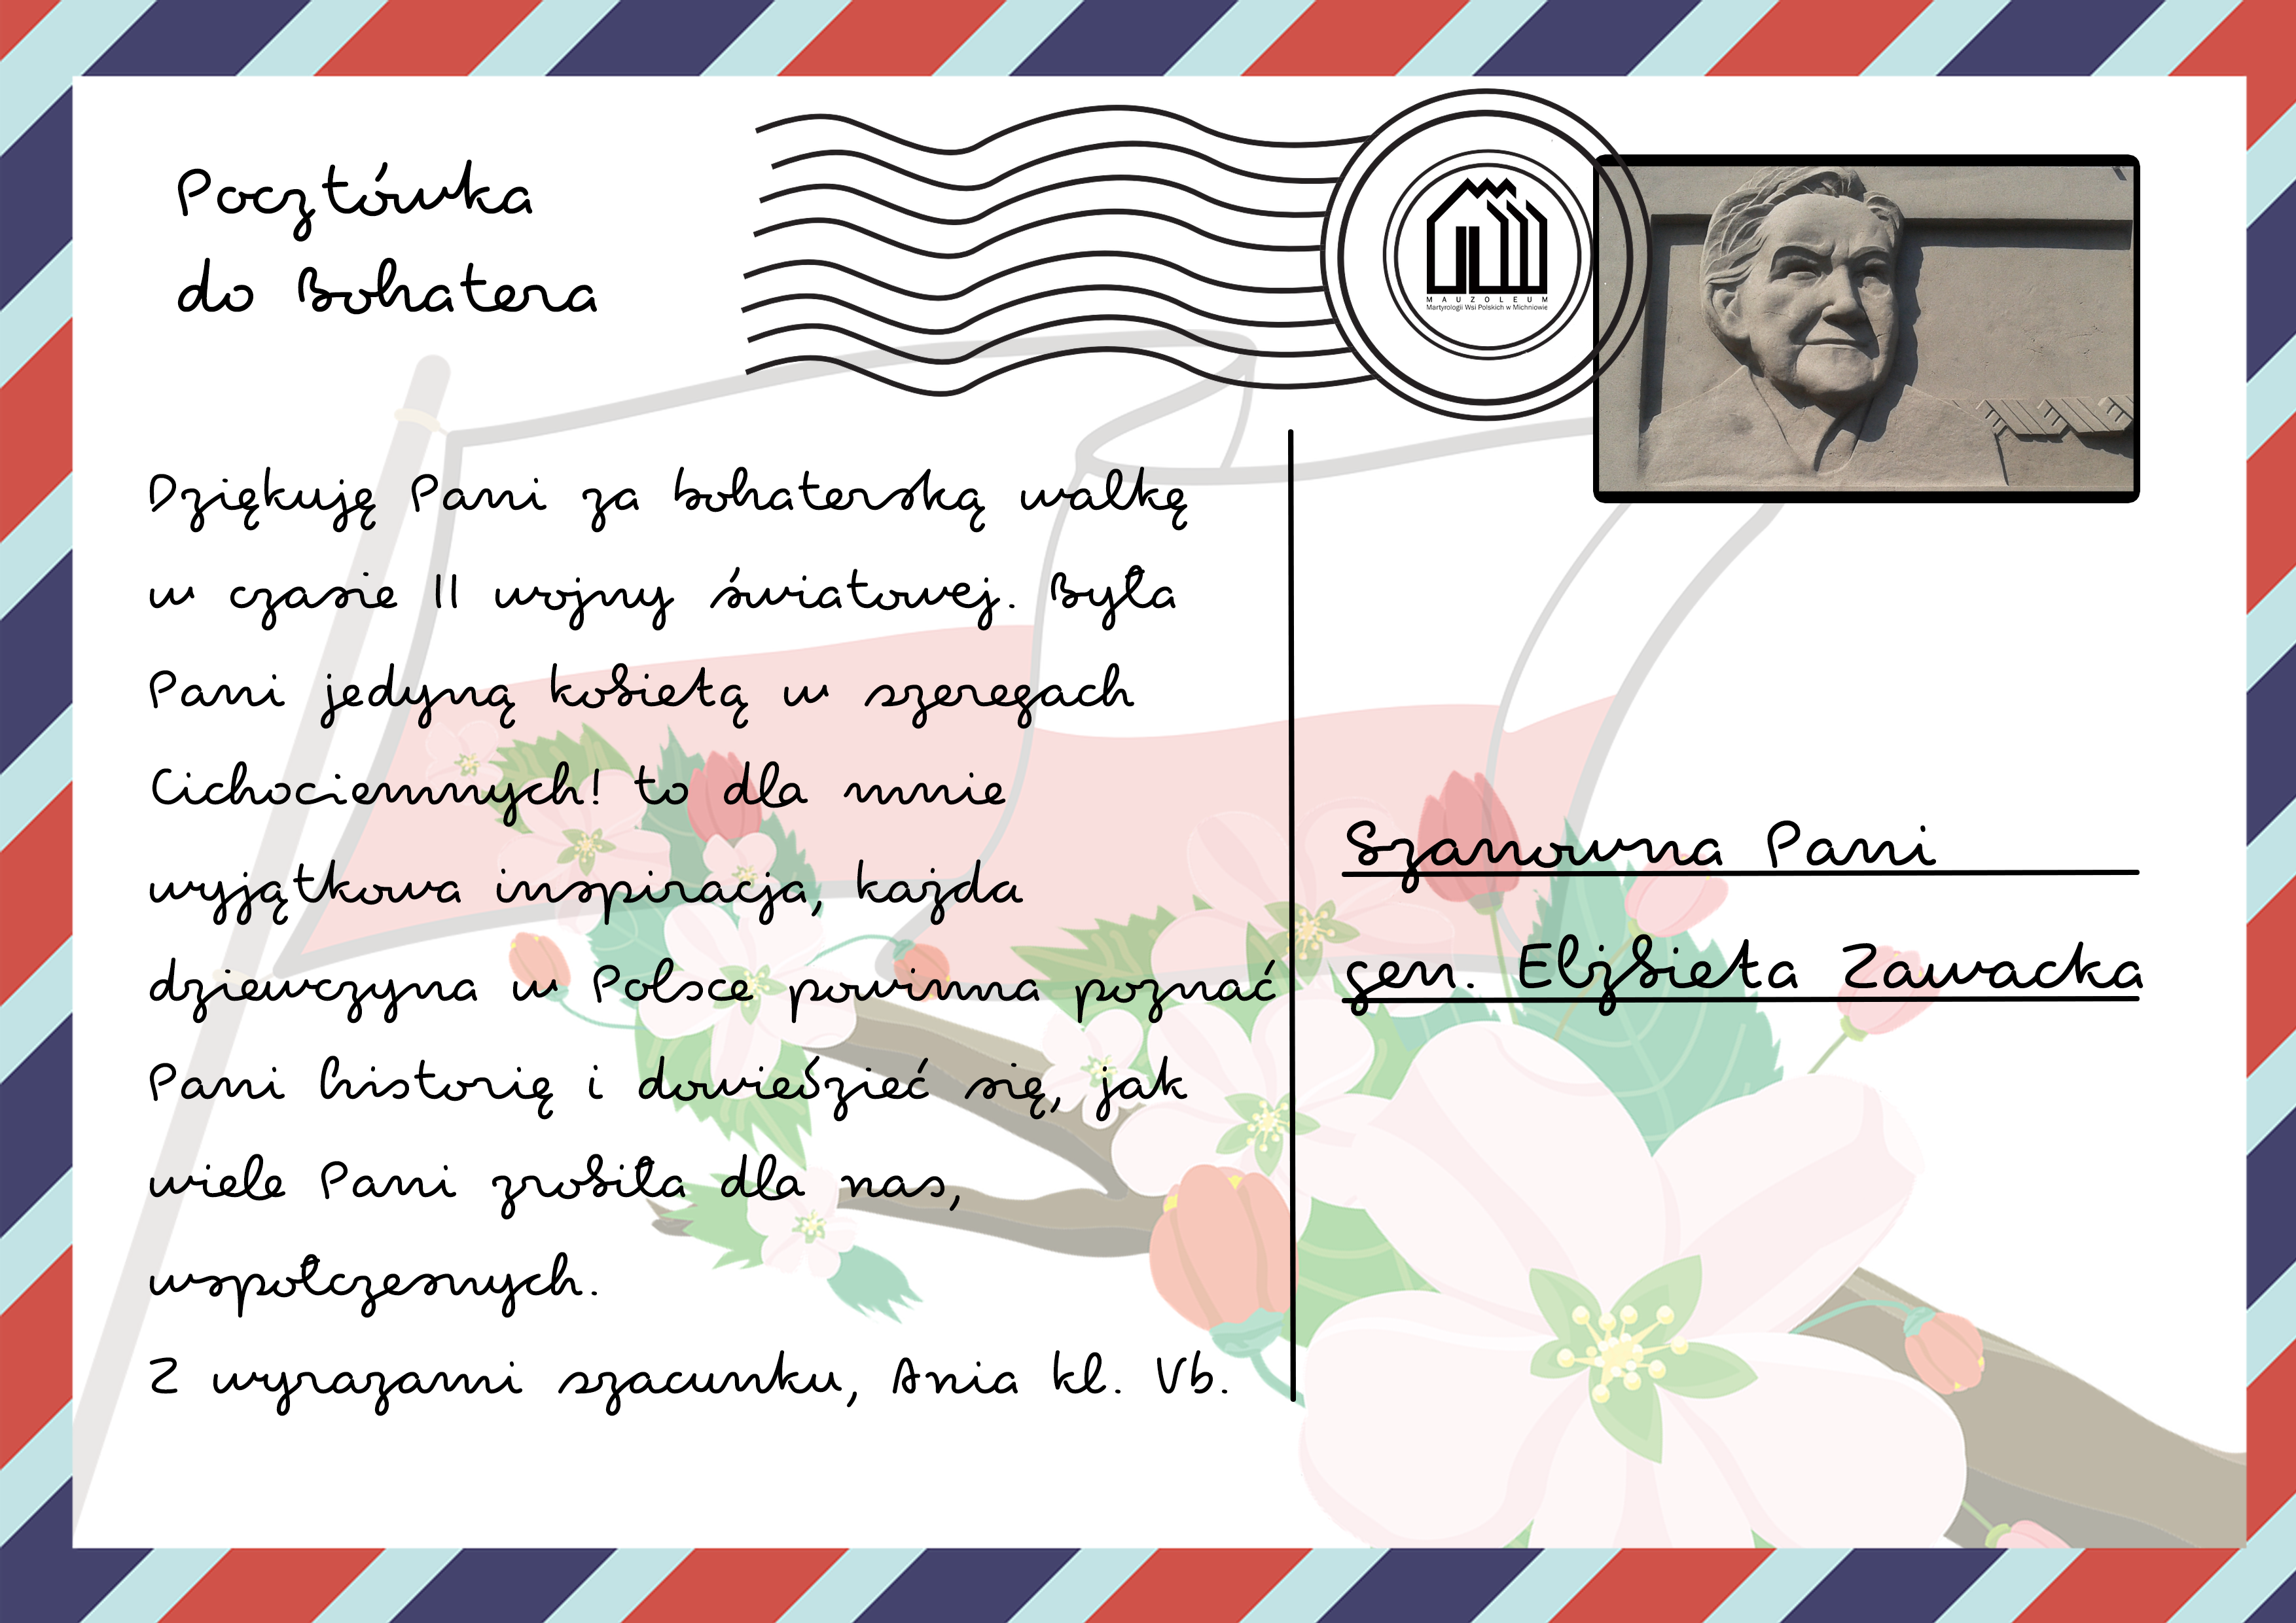 Pocztówka
do Bohatera
MAUZOLEUM
Martyrologii Wsi Polskich w Michniowie
Dziękuję Pani za bohaterską walkę
w czasie II wojny światowej. Była
Pani jedyną kobietą w szeregach
Cichociemnych! to dla mnie
wyjątkowa inspiracja, każda
dziewczyna w Polsce powinna poznać
Pani historię i dowiedzieć się, jak
wiele Pani zrobiła dla nas,
współczesnych.
Z wyrazami szacunku, Ania kl. Vb.
Szanowna Pani
gen. Elżbieta Zawacka